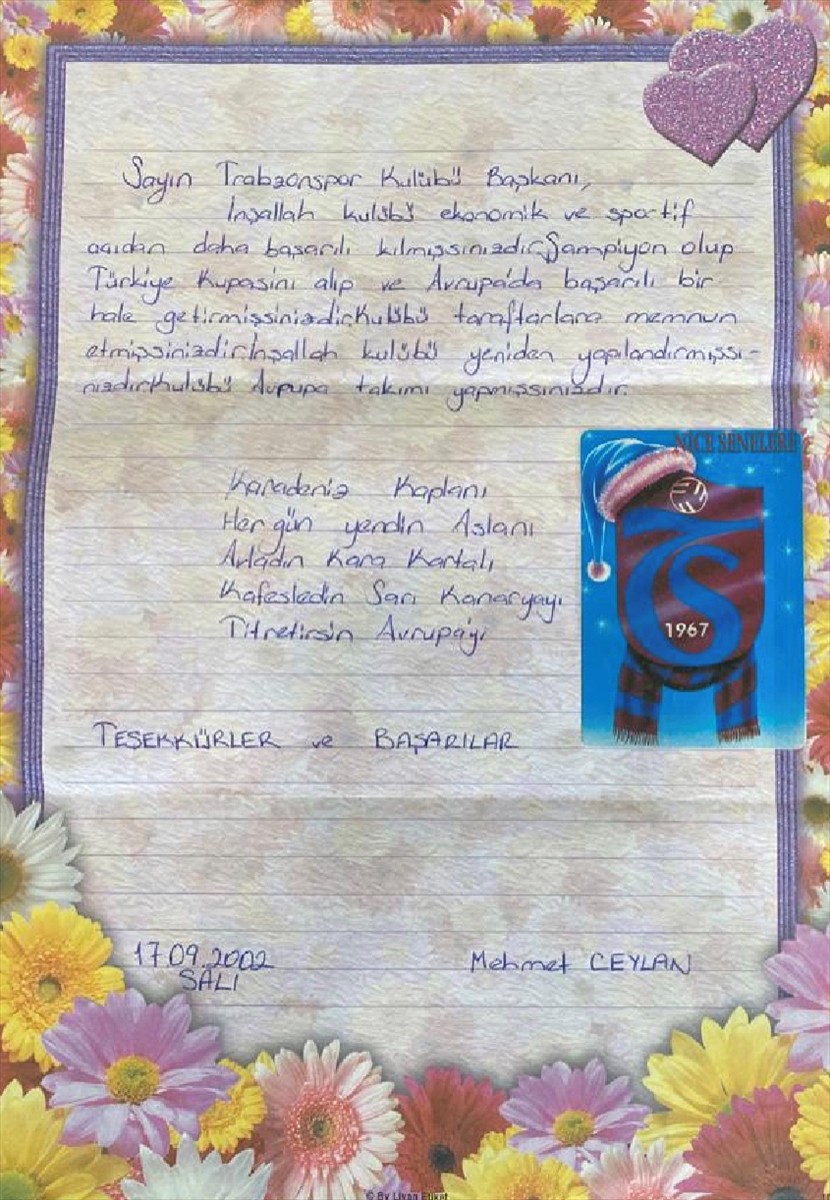 Sayın Trabzonspor Kulübü Başkanı,
İnşallah kulübü ekonomik ve sportif
açıdan daha başarılı kılmışsınızdır.Şampiyon olup
Türkiye Kupasını alıp ve Avrupa'da başarılı bir
hale getirmişsinizdir.Kulübü taraftarları memnun
etmişsinizdir.İnşallah kulübü yeniden yapılandırmışsı-
nızdır.Kulübü Avrupa takımı yapmışsınızdır.
NİCE SENELERE
Karadeniz Kaplanı
Her gün yendin Aslanı
Avladın Kara Kartalı
Kafesledin Sarı Kanaryayı
Titretirsin Avrupa'yı
1967
TEŞEKKÜRLER ve BAŞARILAR
17.09.2002
SALI
Mehmet CEYLAN
© By Liyan Etiket